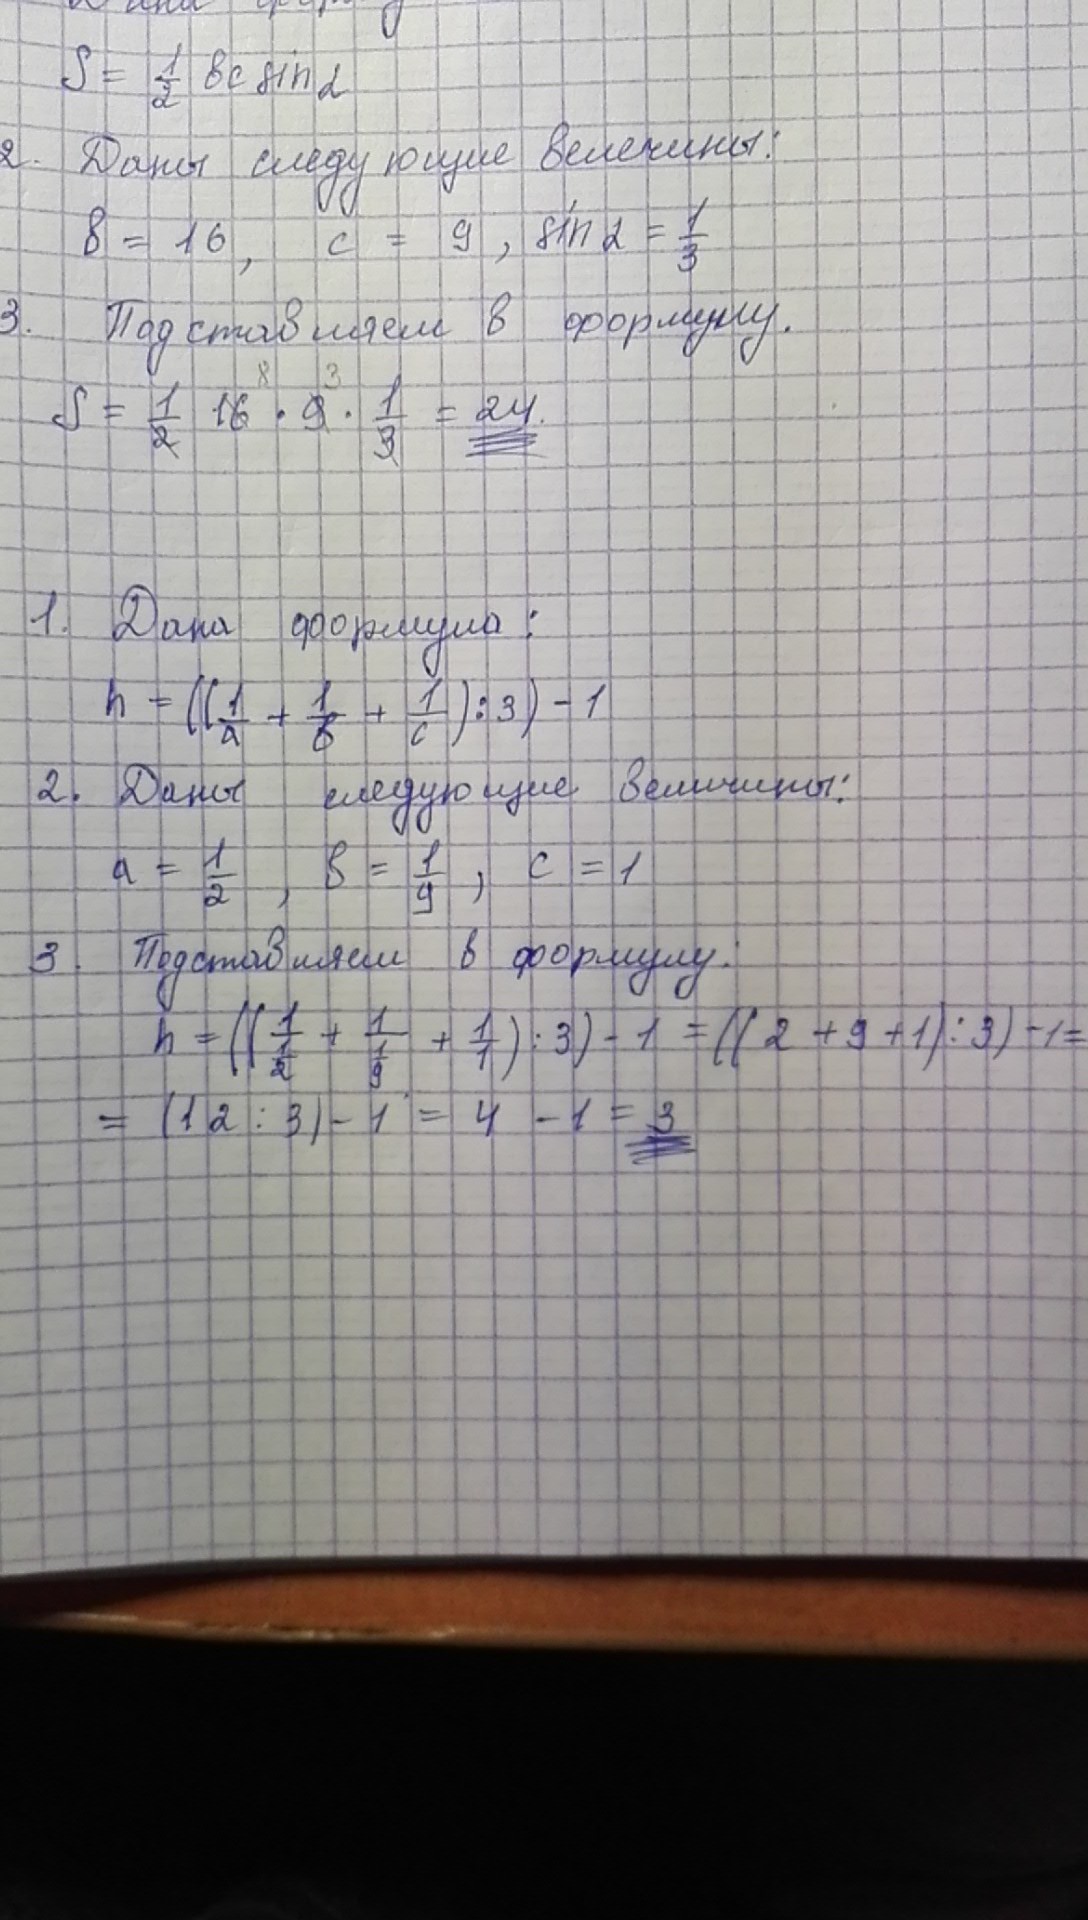 Дана форму
S = 1/2 вc sin α
2. Даны следующие велечины:
в = 16, c = 9, sin α = 1/3
3. Подставляем в формулу.
8 3
S = 1/2 16 · 9 · 1/3 = 24.
1. Дана формула:
h = ((1/a + 1/в + 1/c) : 3) - 1
2. Даны следующие величины:
a = 1/2, в = 1/9, c = 1
3. Подставляем в формулу:
h = ((1/(1/2) + 1/(1/9) + 1/1) : 3) - 1 = ((2 + 9 + 1) : 3) - 1 =
= (12 : 3) - 1 = 4 - 1 = 3